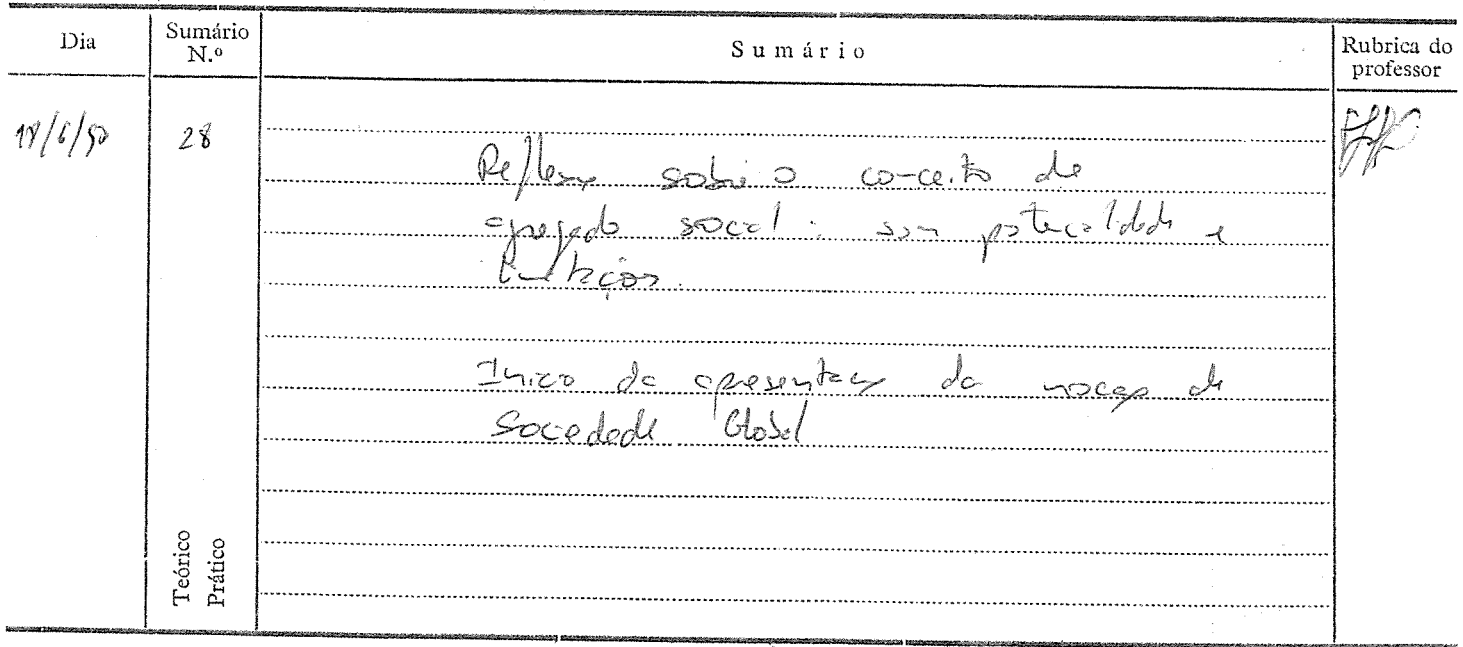 Dia
Sumário N.º
Sumário
Rubrica do professor
28
Reflexão sobre o conceito de
agregado social: suas potencialidades e
limitações.
Início da apresentação da noção de
Sociedade Global
Teórico
Prático